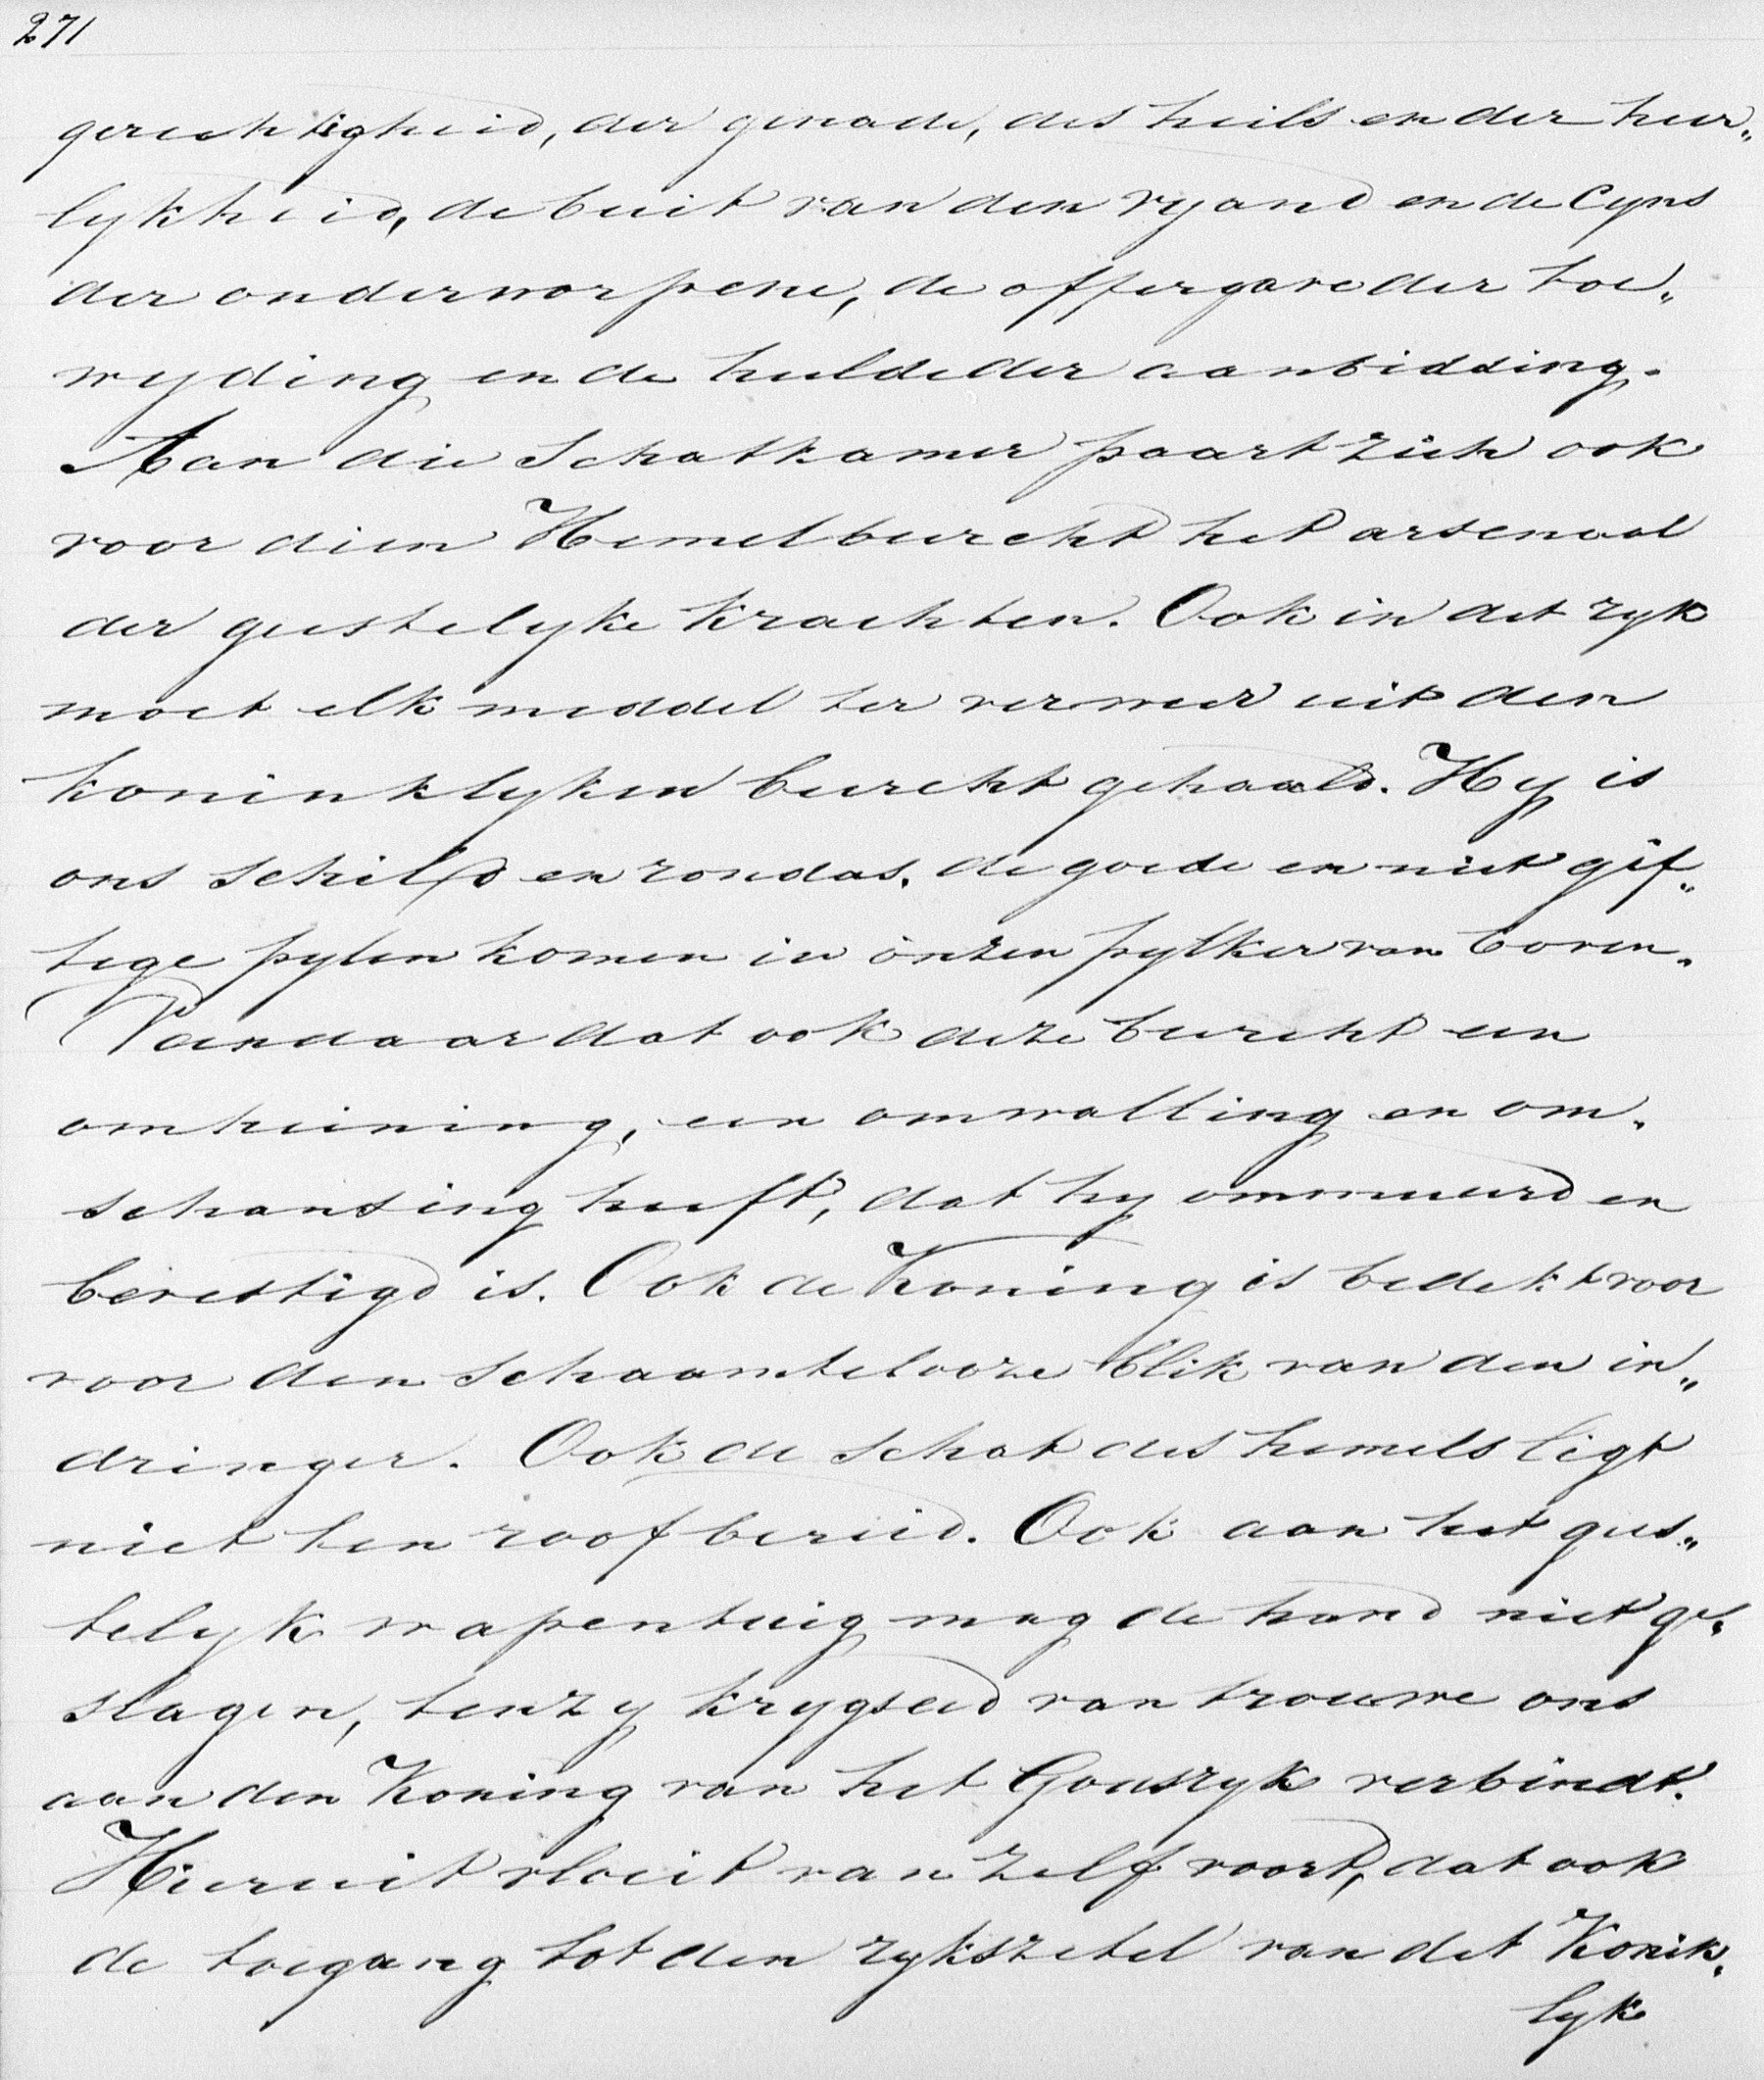 271
gerechtigheid, der genade, des heils en der heer„
lykheid, de buit van den vyand en de Cyns
der onderworpene, de offergave der toe„
wyding en de hulde der aanbidding.
Aan die Schatkamer paart zich ook
voor dien Hemelburcht het arsenaal
der geestelyke krachten. Ook in dit ryk
moet elk middel ter verweer uit den
koninklyken burcht gehaald. Hy is
ons schild en rondas. de goede en niet gif„
tige pylen komen in onzen pylker van boven.
Vandaar dat ook deze burcht een
omheining, een omwalling en om„
schansing heeft, dat hy ommuurd en
bevestigd is. Ook de Koning is bedekt voor
voor den schaamtelooze blik van den in„
dringer. Ook de schat des hemels ligt
niet ten roof bereid. Ook aan het gees„
telyk wapentuig mag de hand niet ge„
slagen, tenzy krygseed van trouwe ons
aan den Koning van het Godsryk verbindt.
Hieruit vloeit van zelf voort, dat ook
de toegang tot den rykszetel van dit Konik„
lyk